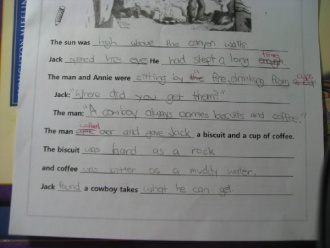 The sun was high above the canyon walls
Jack opened his eyes He had slept a long time
The man and Annie were sitting by the fire drinking from
Jack: "Where did you get them?"
The man: "A cowboy always carries biscuits and coffee."
The man walked over and gave Jack a biscuit and a cup of coffee.
The biscuit was hard as a rock
and coffee was bitter as a muddy water.
Jack found a cowboy takes what he can get